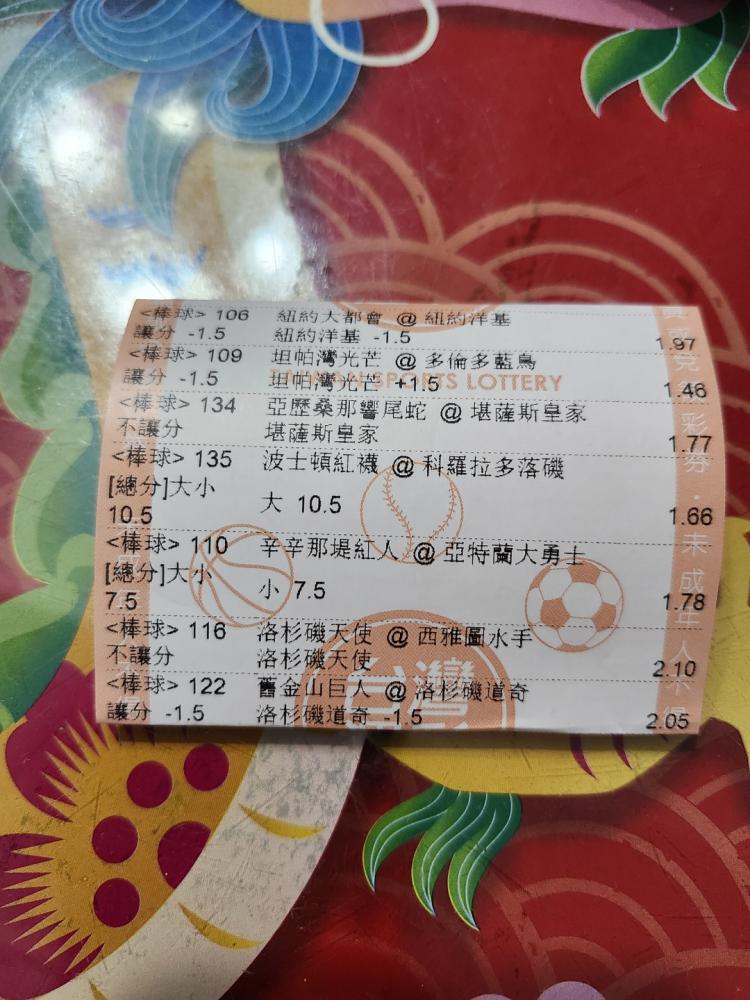 <棒球> 106 紐約大都會 @ 紐約洋基
讓分 -1.5 紐約洋基 -1.5 1.97
<棒球> 109 坦帕灣光芒 @ 多倫多藍鳥
讓分 -1.5 坦帕灣光芒 +1.5 1.46
SPORTS LOTTERY
<棒球> 134 亞歷桑那響尾蛇 @ 堪薩斯皇家
不讓分 堪薩斯皇家 1.77
<棒球> 135 波士頓紅襪 @ 科羅拉多落磯
[總分]大小
10.5 大 10.5 1.66
<棒球> 110 辛辛那堤紅人 @ 亞特蘭大勇士
[總分]大小
7.5 小 7.5 1.78
<棒球> 116 洛杉磯天使 @ 西雅圖水手
不讓分 洛杉磯天使 2.10
<棒球> 122 舊金山巨人 @ 洛杉磯道奇
讓分 -1.5 洛杉磯道奇 -1.5 2.05
台灣
彩券・未成年人不得